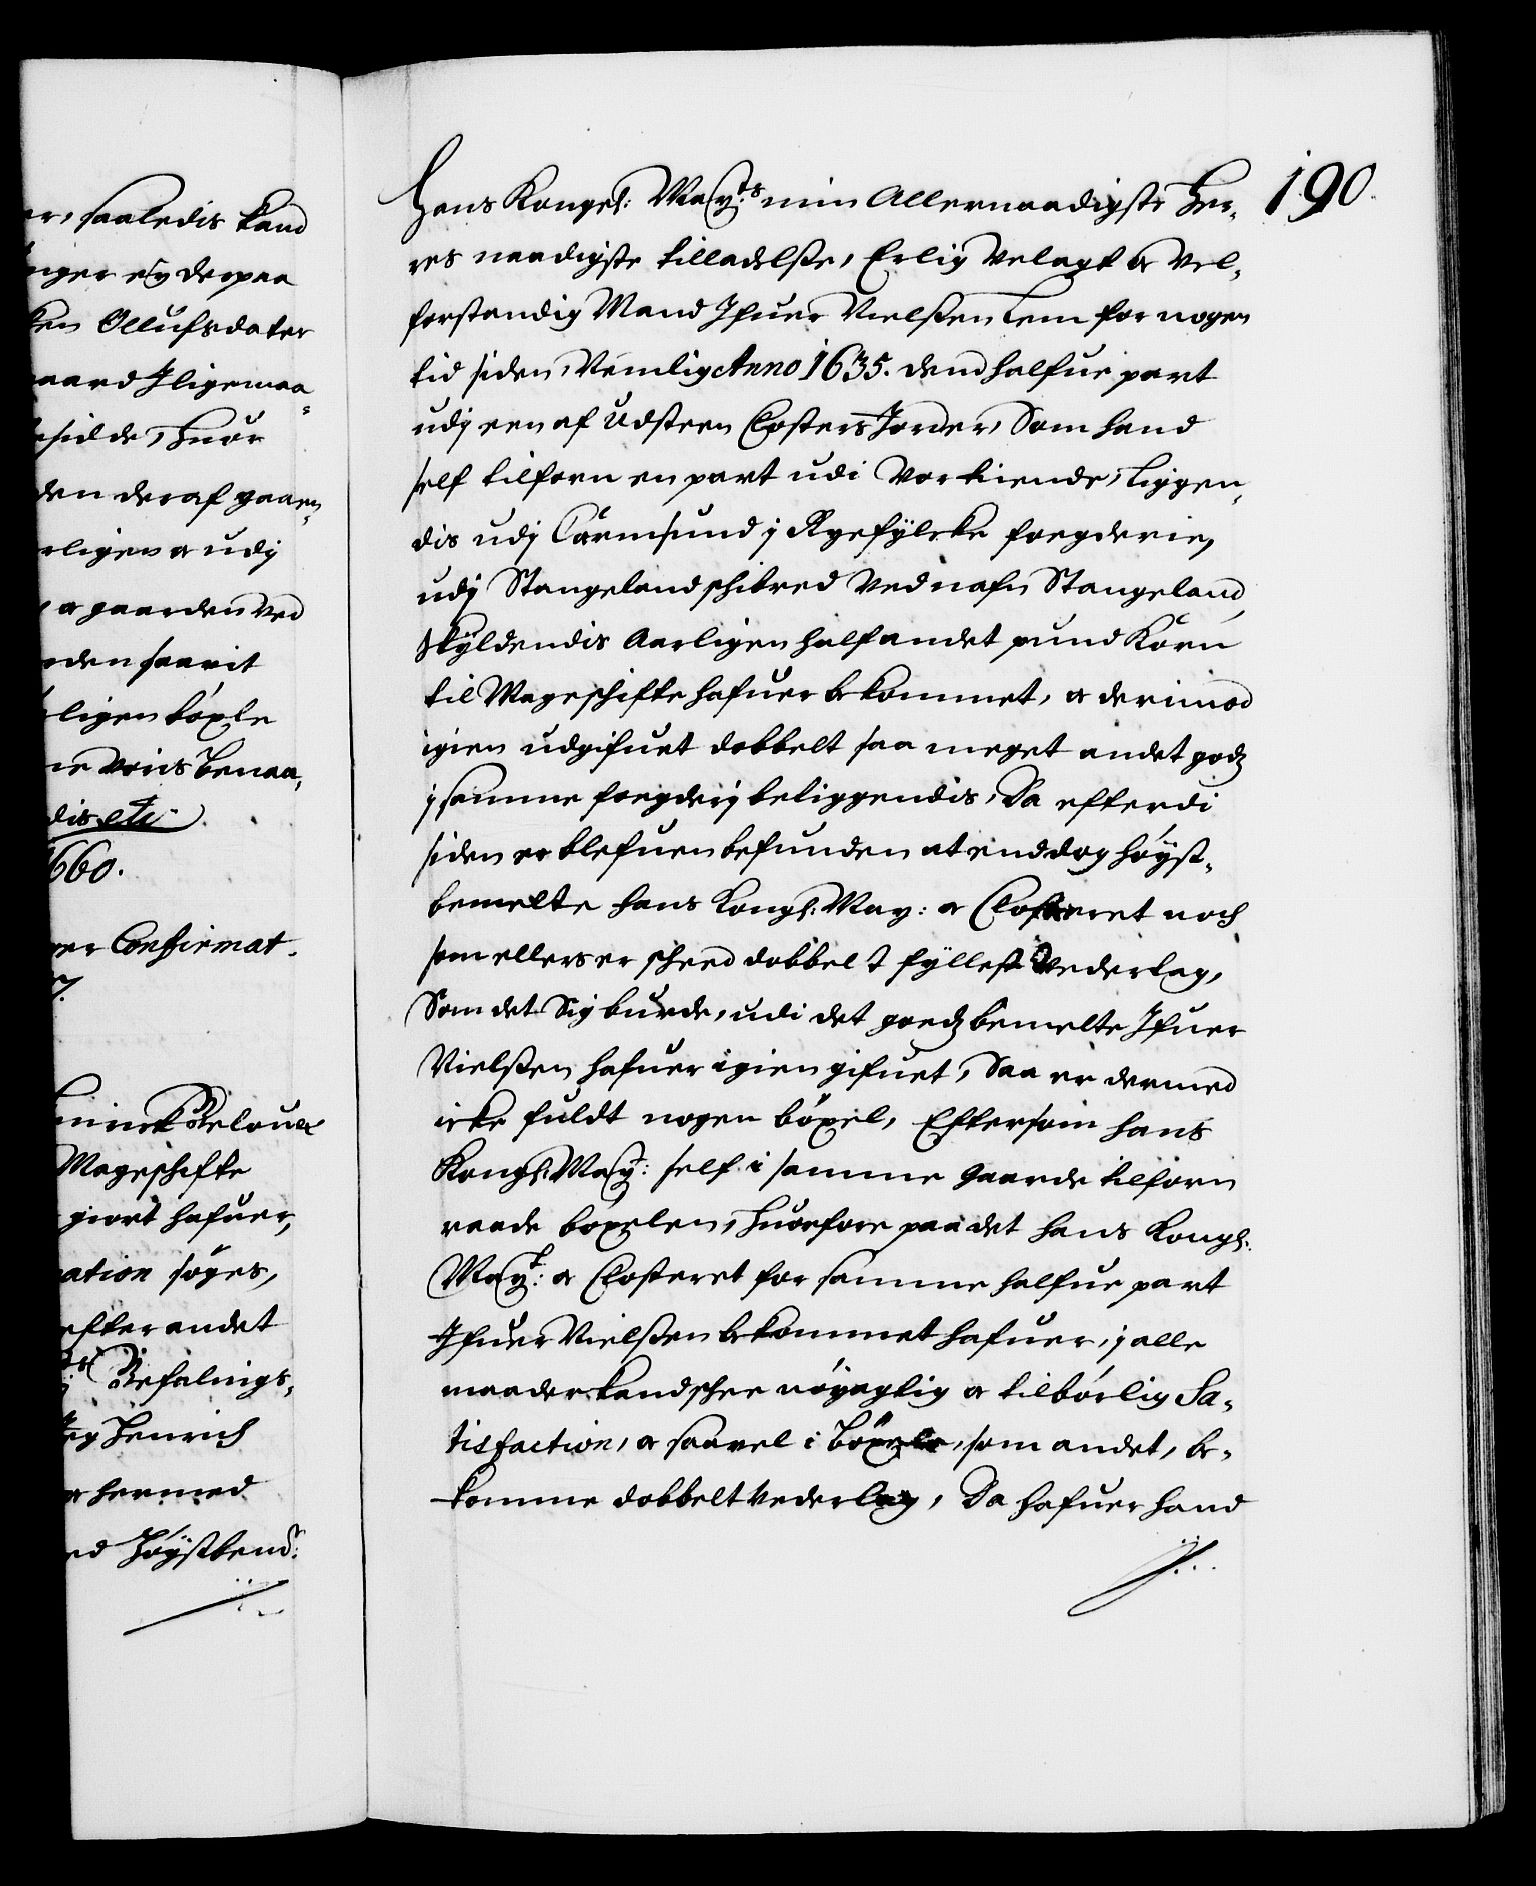 er, saaledis kand
nger eij derpaa
ken Ollufsdater
aard Jligemaa-
sielde, huor
den deraf gaaen-
rligen og udj
, og gaarden ved
rden saavit
rligen böxle
ne voris benaa-
dis etc
660.
er Confirmat.
7.
inink Beloued
Mageschifte
giort hafuer,
ation söges,
efter andet
Befalings,
eg Henrich
og hermed
ed Höystbemt:
190.
Hans Kongel: Mayts min Allernaadigste Her-
res naadigste tilladelsse, Erlig Velagt og Vel-
forstandig Mand Jfuer Nielssen Lem for nogen
tid siden, Nemlig Anno 1635. dend halfue part
udj een af Udsteen Closters Jorder, Som hand
self tilforn en part udi Vor eiende, liggen-
dis udj Carmsund j Ryefylcke foegderie,
udj Stangeland schibred Ved nafn Stangeland,
Skyldendis Aarligen halfandet pund Korn
til Mageschifte hafuer bekommet, og derimod
igien udgifuet dobbelt saa meget andet godz
j samme foegderj beliggendis, Da efterdi
siden er blefuen befunden at enddog höyst-
bemelte hans Kongl: May: og Closteret noch
som ellers er scheed dobbelt fyllest Vederlag,
Som det Sig burde, udi det goedz bemelte Jfuer
Nielssen hafuer igien gifuet, Saa er dermed
icke fuldt nogen böxel, Eftersom hans
Kongl: Mayt: self i samme Gaarde tilforn
raade böxelen, Huorfore paa det hans Kongl:
Mayt: og Closteret for samme halfue part
Jfuer Nielssen bekommet hafuer, j alle
maader kand schee nöyagtig og tilbörlig Sa-
tisfaction, og saavel i Böxele, som andet, be-
komme dobbelt Vederlag, Da hafuer hand